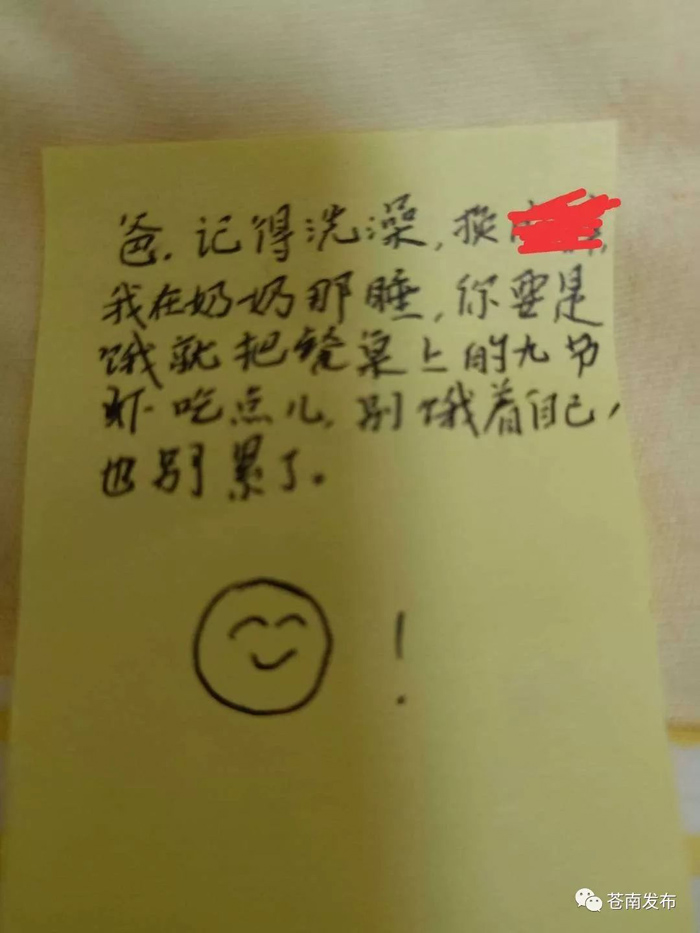 爸.记得洗澡,换
我在奶奶那睡,你要是
饿就把餐桌上的九节
虾吃点儿,别饿着自己,
也别累了。
!
苍南发布